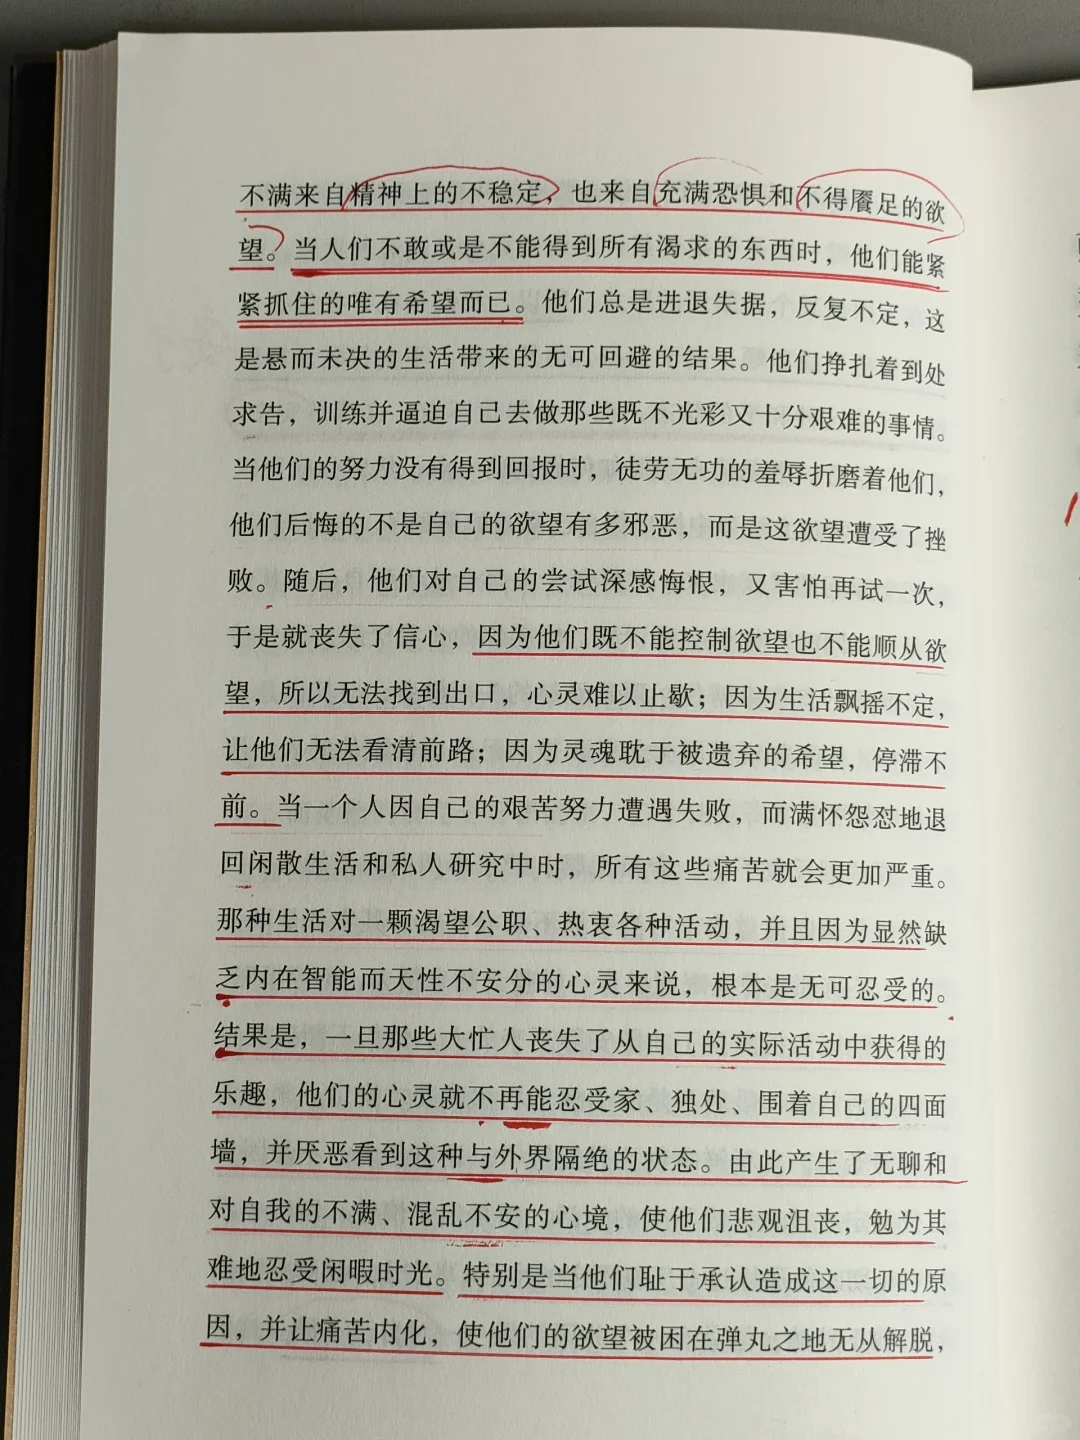 不满来自精神上的不稳定，也来自充满恐惧和不得餍足的欲
望。当人们不敢或是不能得到所有渴求的东西时，他们能紧
紧抓住的唯有希望而已。他们总是进退失据，反复不定，这
是悬而未决的生活带来的无可回避的结果。他们挣扎着到处
求告，训练并逼迫自己去做那些既不光彩又十分艰难的事情。
当他们的努力没有得到回报时，徒劳无功的羞辱折磨着他们，
他们后悔的不是自己的欲望有多邪恶，而是这欲望遭受了挫
败。随后，他们对自己的尝试深感悔恨，又害怕再试一次，
于是就丧失了信心，因为他们既不能控制欲望也不能顺从欲
望，所以无法找到出口，心灵难以止歇；因为生活飘摇不定，
让他们无法看清前路；因为灵魂耽于被遗弃的希望，停滞不
前。当一个人因自己的艰苦努力遭遇失败，而满怀怨怼地退
回闲散生活和私人研究中时，所有这些痛苦就会更加严重。
那种生活对一颗渴望公职、热衷各种活动，并且因为显然缺
乏内在智能而天性不安分的心灵来说，根本是无可忍受的。
结果是，一旦那些大忙人丧失了从自己的实际活动中获得的
乐趣，他们的心灵就不再能忍受家、独处、围着自己的四面
墙，并厌恶看到这种与外界隔绝的状态。由此产生了无聊和
对自我的不满、混乱不安的心境，使他们悲观沮丧，勉为其
难地忍受闲暇时光。特别是当他们耻于承认造成这一切的原
因，并让痛苦内化，使他们的欲望被困在弹丸之地无从解脱，